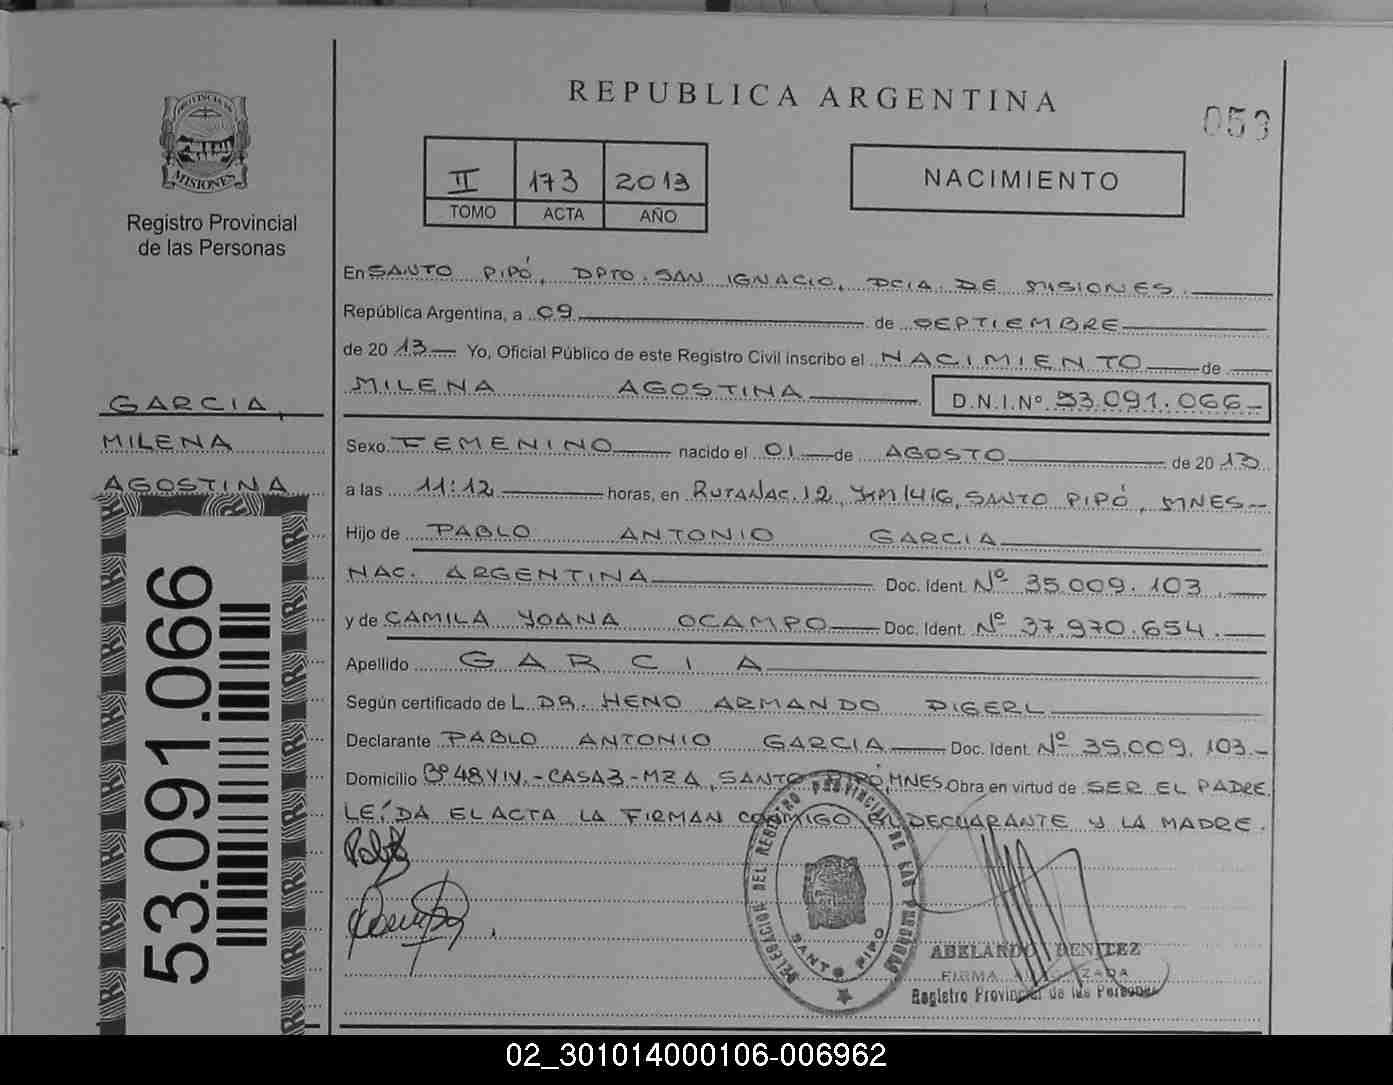 REPUBLICA ARGENTINA
059
PROVINCIA DE
MISIONES
Registro Provincial
de las Personas
II 173 2013
TOMO ACTA AÑO
NACIMIENTO
En SANTO PIPÓ, DPTO. SAN IGNACIO, PCIA. DE MISIONES.
República Argentina, a 09 de SEPTIEMBRE
de 2013 Yo, Oficial Público de este Registro Civil inscribo el NACIMIENTO de
MILENA AGOSTINA D.N.I.Nº 53.091.066
GARCIA,
MILENA
AGOSTINA
Sexo FEMENINO nacido el 01 de AGOSTO de 2013
a las 11:12 horas, en RUTA NAC. 12, KM 1416, SANTO PIPÓ, MNES
Hijo de PABLO ANTONIO GARCIA
NAC. ARGENTINA Doc. Ident. Nº 35.009.103
y de CAMILA YOANA OCAMPO Doc. Ident. Nº 37.970.654.
Apellido GARCIA
Según certificado de L DR. HENO ARMANDO DIGERL
Declarante PABLO ANTONIO GARCIA Doc. Ident. Nº 35.009.103.
Domicilio Bº 48 VIV.-CASA3-MZA, SANTO PIPÓ, MNES Obra en virtud de SER EL PADRE.
LEÍDA EL ACTA LA FIRMAN CONMIGO EL DECLARANTE Y LA MADRE.
53.091.066
DELEGACION DEL REGISTRO PROVINCIAL DE LAS PERSONAS
SANTO PIPO
ABELARDO BENITEZ
FIRMA AUTORIZADA
Registro Provincial de las Personas
02_301014000106-006962